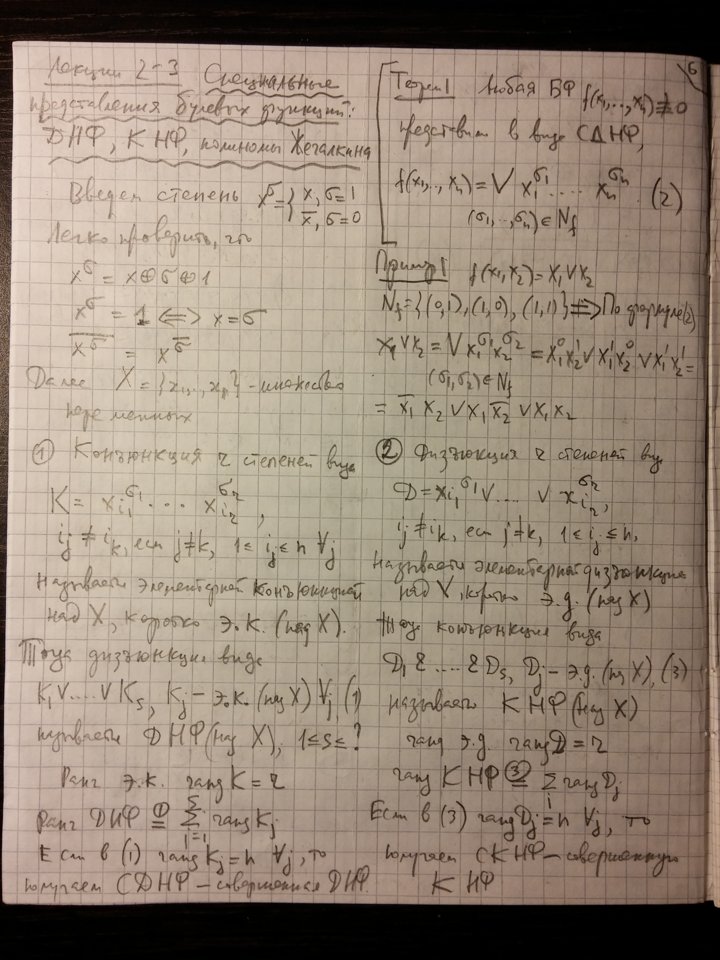 Лекции 2-3 Специальные
представления булевых функций:
ДНФ, КНФ, полиномы Жегалкина
Введем степень x^σ = { x, σ=1
x̄, σ=0
Легко проверить, что
x^σ = x⊕σ⊕1
x^σ = 1 ⇔ x=σ
\overline{x^σ} = x^{σ̄}
Далее X = {x₁,..,xₙ} - множество
переменных
① Конъюнкция r степеней вида
K = x_{i₁}^{σ₁} · · · x_{i_r}^{σ_r},
i_j ≠ i_k, если j≠k, 1≤ i_j ≤ n ∀j
называется элементарной конъюнкцией
над X, коротко э.к. (над X).
Тогда дизъюнкция вида
K₁ ∨ .... ∨ K_s, K_j - э.к. (над X) ∀j, (1)
называется ДНФ (над X), 1≤s≤ ?
Ранг э.к. rang K = r
Ранг ДНФ ≝ ① ∑_{i=1}^{s} rang K_j
Если в (1) rang K_j = n ∀j, то
получаем СДНФ - совершенная ДНФ.
6
Теорем 1 Любая БФ f(x₁,..,xₙ) ≢ 0
представима в виде СДНФ,
f(x₁,..,xₙ) = ⋁ x₁^{σ₁} ..... xₙ^{σₙ}. (2)
(σ₁,..,σₙ) ∈ N_f
Пример 1 f(x₁,x₂) = x₁∨x₂
N_f = {(0,1), (1,0), (1,1)} ⇒ По формуле (2)
x₁∨x₂ = ⋁ x₁^{σ₁} x₂^{σ₂} = x₁⁰x₂¹ ∨ x₁¹x₂⁰ ∨ x₁¹x₂¹ =
(σ₁,σ₂) ∈ N_f
= x̄₁ x₂ ∨ x₁ x̄₂ ∨ x₁ x₂
② Дизъюнкция r степеней вида
D = x_{i₁}^{σ₁} ∨ .... ∨ x_{i_r}^{σ_r},
i_j ≠ i_k, если j≠k, 1≤ i_j ≤ n,
называется элементарной дизъюнкцией
над X, коротко э.д. (над X)
Тогда конъюнкция вида
D₁ & ..... & D_s, D_j - э.д. (над X), (3)
называется КНФ (над X)
rang э.д. rang D = r
rang КНФ ③ ≝ ∑_i rang D_j
Если в (3) rang D_j = n ∀j, то
получаем СКНФ - совершенную
КНФ